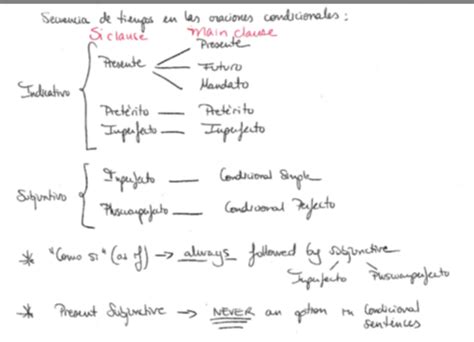 Secuencia de tiempos en las oraciones condicionales:
Si clause Main clause
Indicativo
Presente — Presente
Futuro
Mandato
Pretérito — Pretérito
Imperfecto — Imperfecto
Subjuntivo
Imperfecto — Condicional Simple
Pluscuamperfecto — Condicional Perfecto
* "Como si" (as if) → always followed by subjunctive
Imperfecto Pluscuamperfecto
* Present Subjunctive → NEVER an option in Conditional
sentences